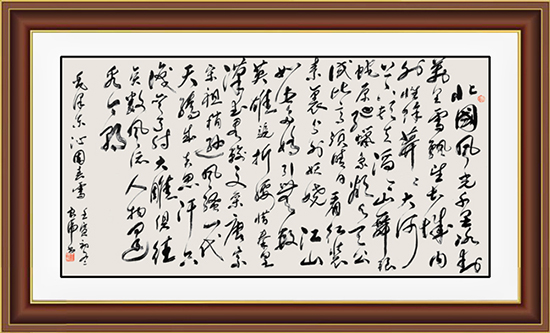 北國風光千里冰封
萬里雪飄望長城內
外惟餘莽莽大河
上下頓失滔滔山舞銀
蛇原馳蠟象欲與天公
試比高須晴日看紅裝
素裹分外妖嬈江山
如此多嬌引無數
英雄競折腰惜秦皇
漢武略輸文采唐宗
宋祖稍遜風騷一代
天驕成吉思汗只
識彎弓射大雕俱往
矣數風流人物還
看今朝
毛澤東沁園春雪
壬寅初冬